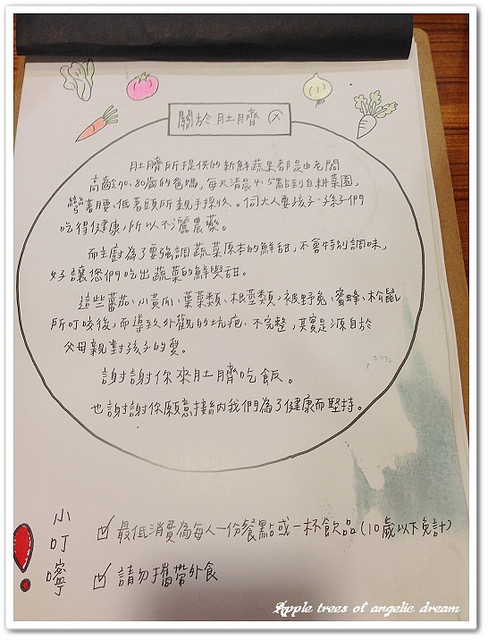 關於肚臍
肚臍所提供的新鮮蔬果都是由老闆
高齡70、80歲的爸媽，每天清晨4、5點到自耕菜園，
彎著腰、低著頭所親手採收。
吃得健康，所以不灑農藥。
而主廚為了要強調蔬菜原本的鮮甜，不會特別調味，
好讓您們吃出蔬菜的鮮與甜。
這些蕃茄、小黃瓜、葉菜類、根莖類，被野兔、蜜蜂、松鼠
所叮咬後，而導致外觀的坑疤、不完整，其實是源自於
父母親對孩子的愛。
謝謝你來肚臍吃飯。
也謝謝你願意接納我們為了健康而堅持。
小叮嚀
最低消費為每人一份餐點或一杯飲品(10歲以下免計)
請勿攜帶外食
Apple trees of angelic dream